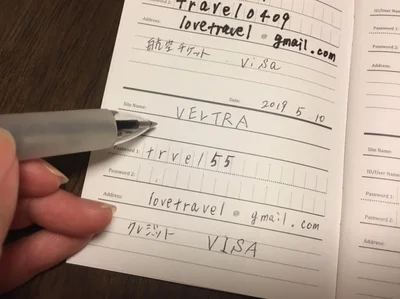 travel0409
Address:
lovetravel@gmail.com
航空チケット Visa
Site Name: Date: 2019 5 10
VELTRA
Password 1: trvel55
Password 2:
Address:
lovetravel@gmail.com
クレジット VISA
ID/User Name
Password 1
Password 2
Address:
Site Name:
ID/User Name
Password 1:
Password 2:
Address: